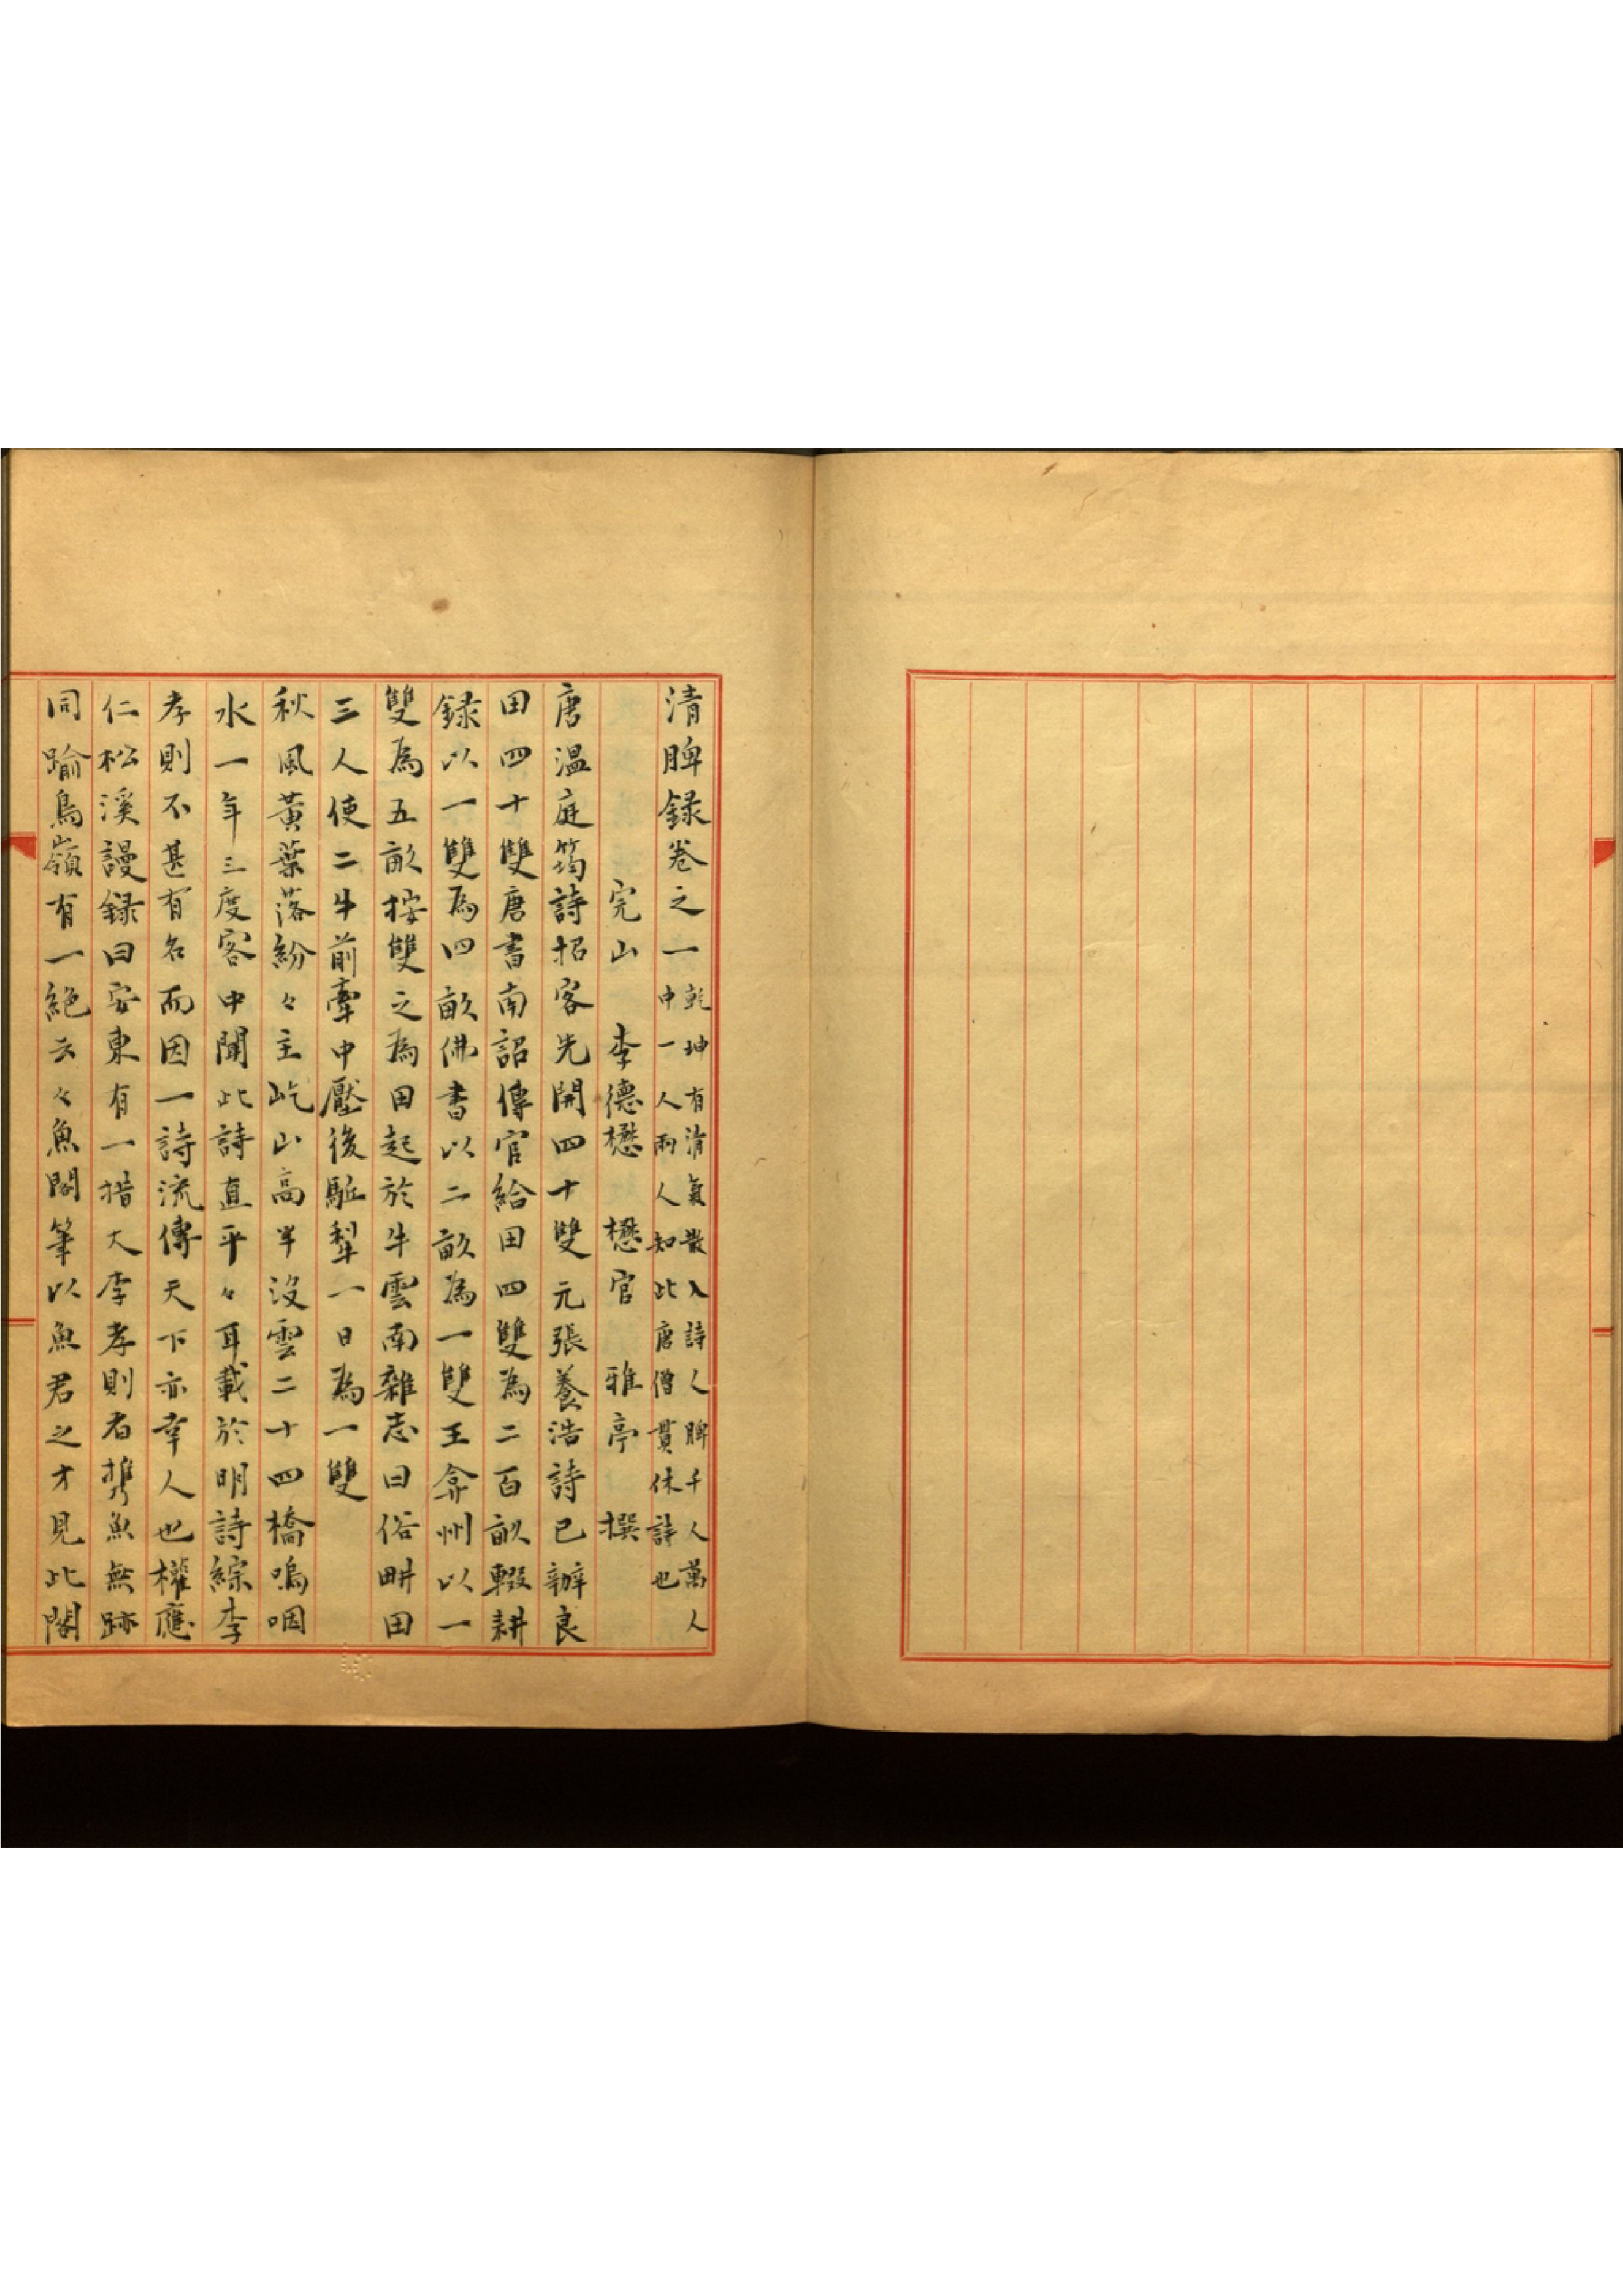 清脾録卷之一乾坤有清氣散入詩人脾千人萬人
中一人兩人知此唐僧貫休詩也
完山 李德懋 懋官 雅亭 撰
唐温庭筠詩招客先開四十雙元張養浩詩已辦良
田四十雙唐書南詔傳官給田四雙為二百畝輟耕
録以一雙為四畝佛書以二畝為一雙王弇州以一
雙為五畝按雙之為田起於牛雲南雜志曰俗畊田
三人使二牛前牽中壓後駈犁一日為一雙
秋風黃葉落紛々主屹山高半沒雲二十四橋嗚咽
水一年三度客中聞此詩直平々耳載於明詩綜李
孝則不甚有名而因一詩流傳天下亦幸人也權應
仁松溪謾録曰安東有一措大李孝則者携魚無跡
同踰鳥嶺有一絶云々魚閣筆以魚君之才見此閣